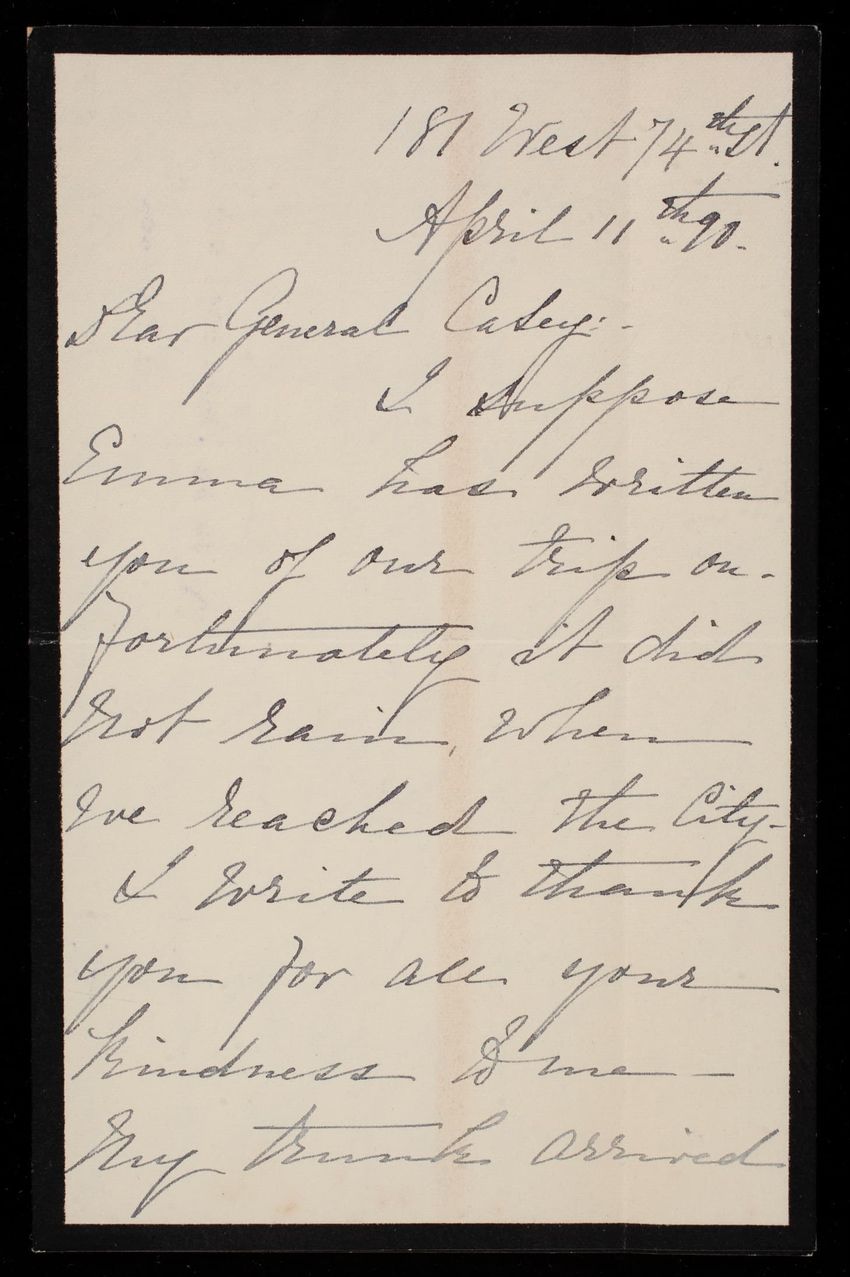 181 West 74th St.
April 11th 90.
Dear General Casey:-
I suppose
Emma has written
you of our trip on.
Fortunately it did
not rain, when
we reached the City-
I write to thank
you for all your
kindness to me -
My trunk arrived